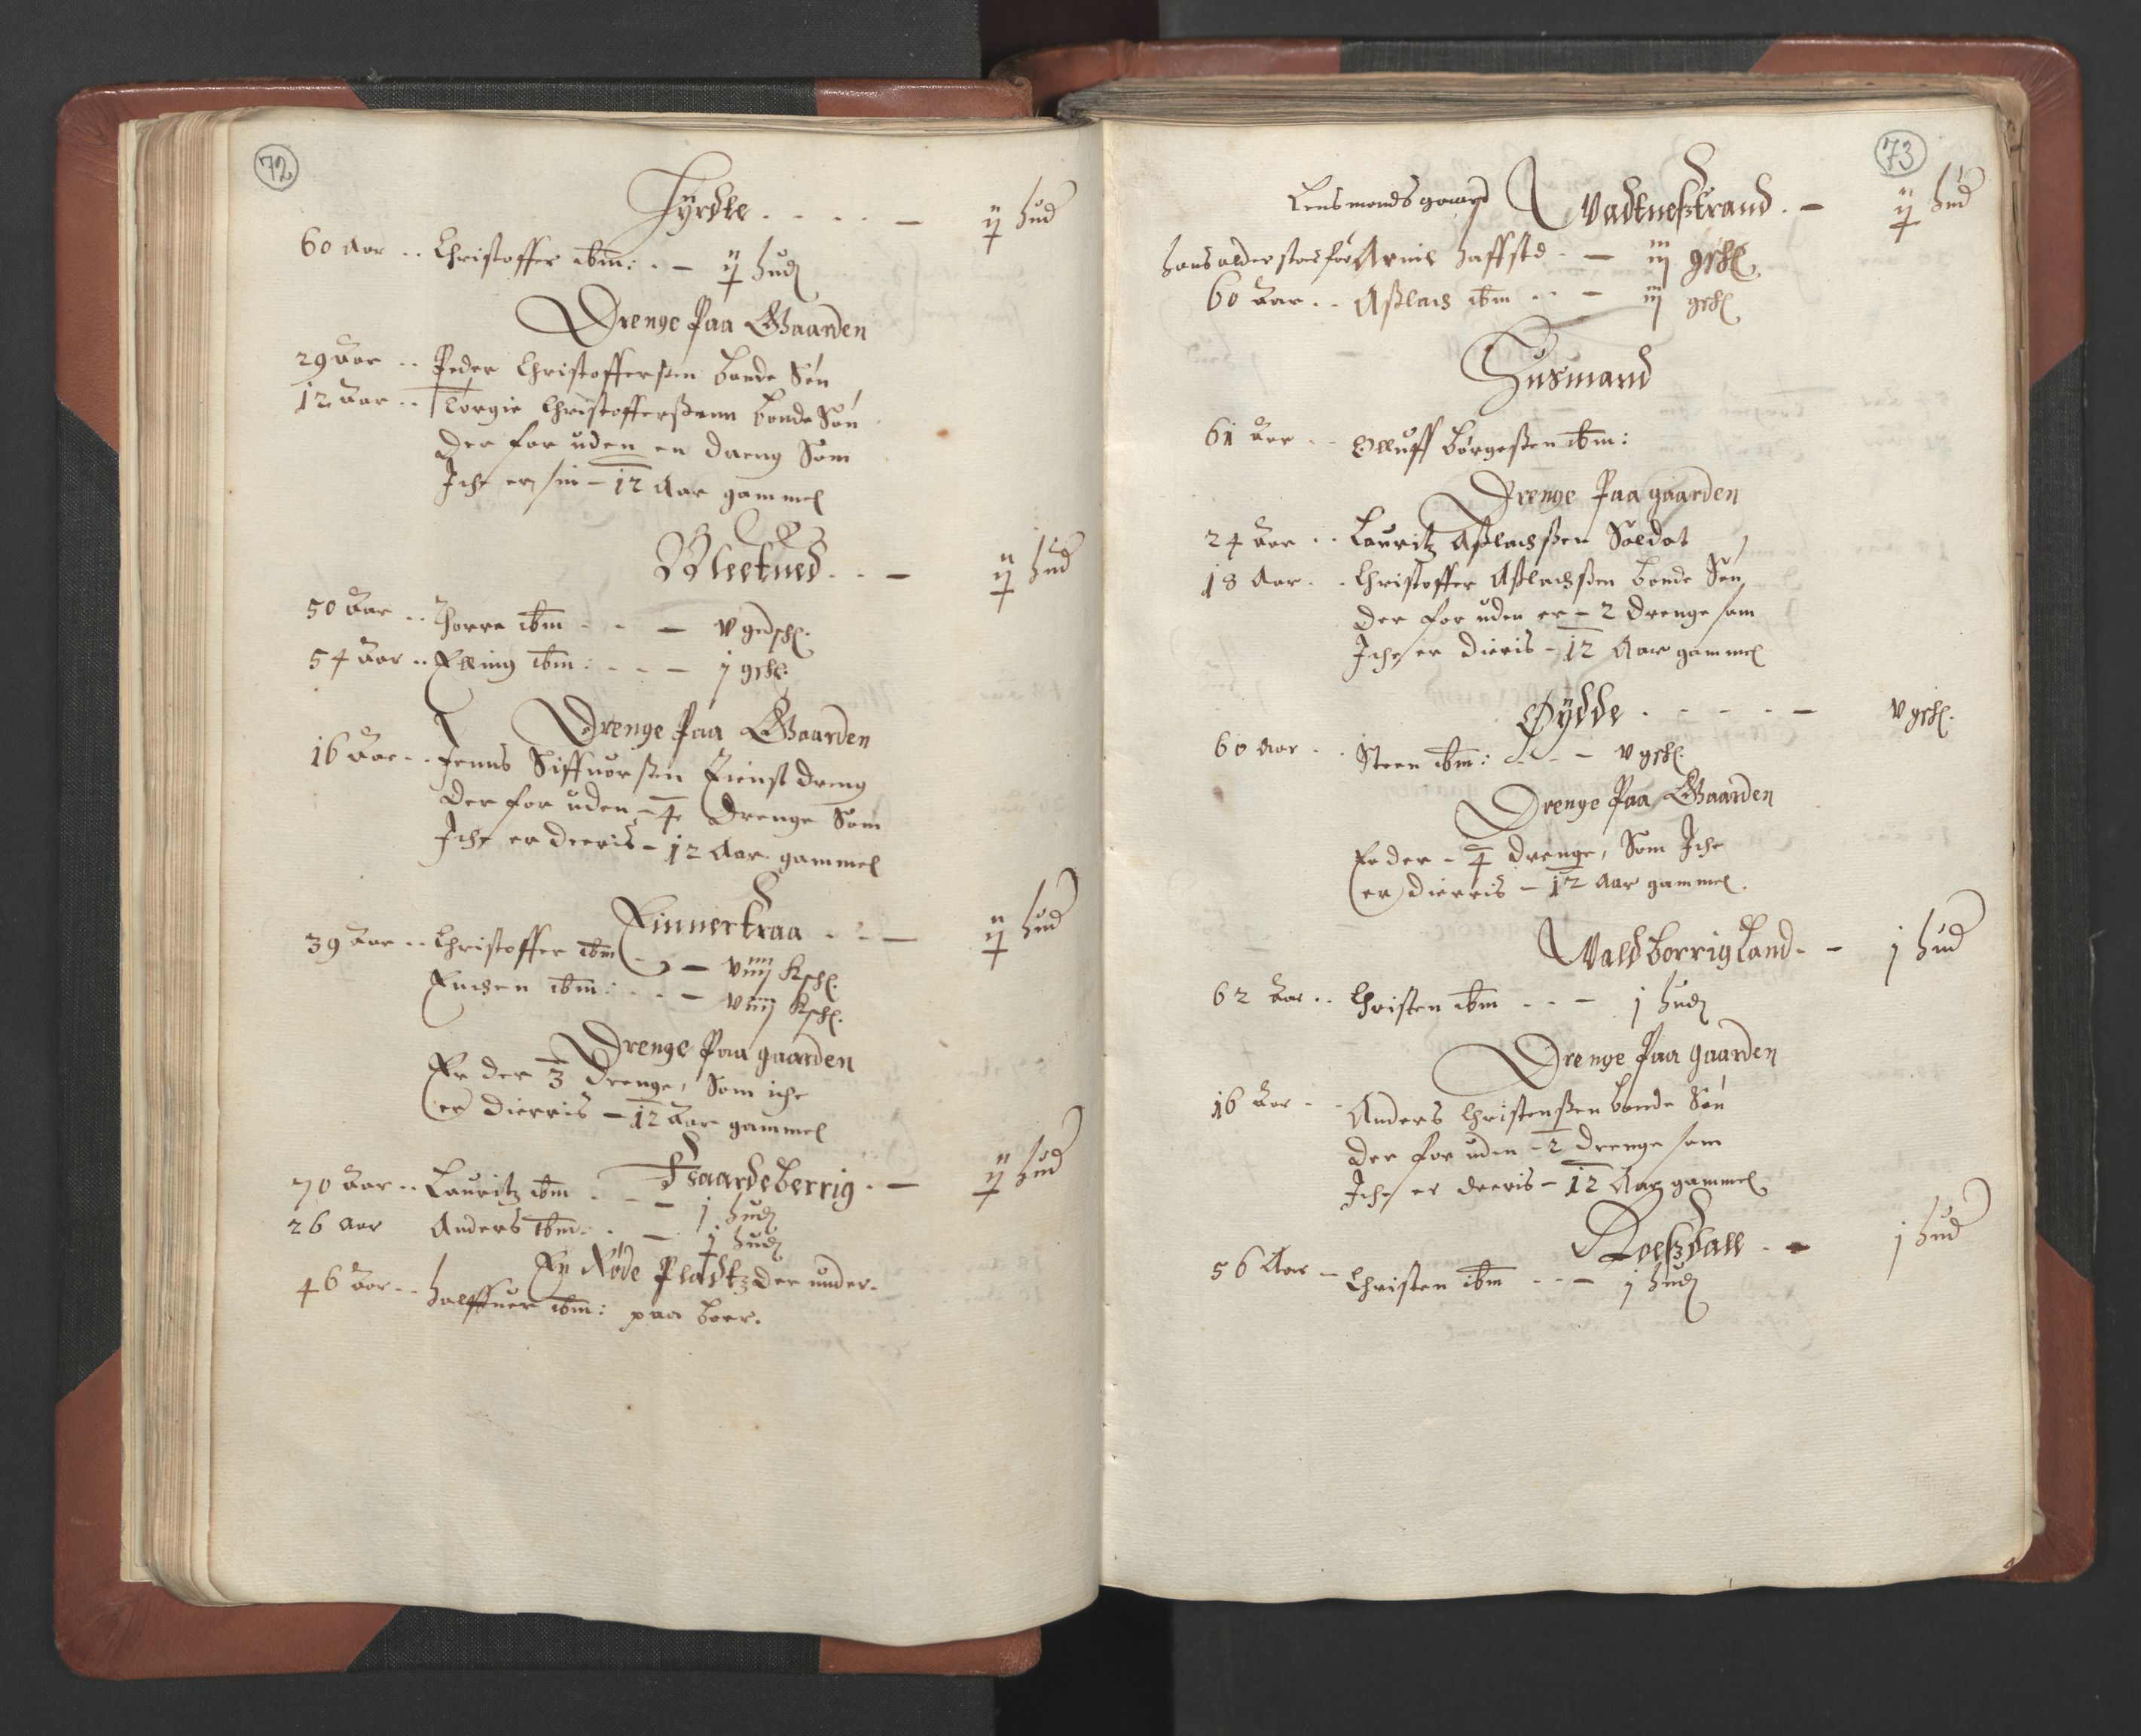 72
Fÿrdle . . . . — ij hud
60 Aar .. Christoffer ibm: . — ij hud
Drenge Paa Gaarden
29 Aar .. Peder Christoffersen bonde Sön
12 Aar .. Torgie Christofferßenn bonde Sön
Der for uden en dreng Som
Iche er sin – 12 Aar gammel
. . — ij hud
50 Aar .. Thorre ibm . . — v gedsk:
54 Aar .. Elling ibm: . . . — j gsk:
Drenge Paa Gaarden
16 Aar .. Jenns Siffuorßen Tienist dreng
Der for uden – 4 Drenge Som
Iche er deeris – 12 Aar gammel
Finnerkraa . . — ij hud
39 Aar .. Christoffer ibm . . — viiij Ksk:
ibm: . . . — viiij Ksk:
Drenge Paa gaarden
Er der 3 Drenge, Som iche
er dierris – 12 Aar gammel
. — ij hud
70 Aar .. Lauritz ibm . . — j hud
26 Aar Anders ibm: . . — j hud
En Nöde Pladtz der under
46 Aar .. Halffuer ibm: paa boer.
73
Lens mands gaard Vadtneßtrand . — ij hud
hans alder staar for Arnie haffsted . — iij gsk:
60 Aar .. Aßlach ibm . . — iij gsk:
Husmand
61 Aar .. Olluff börgeßen ibm:
Drenge Paa gaarden
24 Aar .. Lauritz Aßlachßen Soldat
18 Aar .. Christoffer Aßlachßen bonde Sön
Der for uden er – 2 drenge som
Iche er dieris – 12 Aar gammel
Øÿdde . . . . . — v gsk:
60 Aar .. Steen ibm: . . . — v gsk:
Drenge Paa Gaarden
Er der – 4 drenge, Som Iche
er dierris – 12 Aar gammel.
Valdborrigland . — j hud
62 Aar .. Christen ibm . . — j hud
Drenge Paa gaarden
16 Aar . . Anders Christenßen bonde Sön
Der for uden – 2 drenge som
Iche er deeris – 12 Aar gammel
Roeßdall . — j hud
56 Aar – Christen ibm . . — j hud